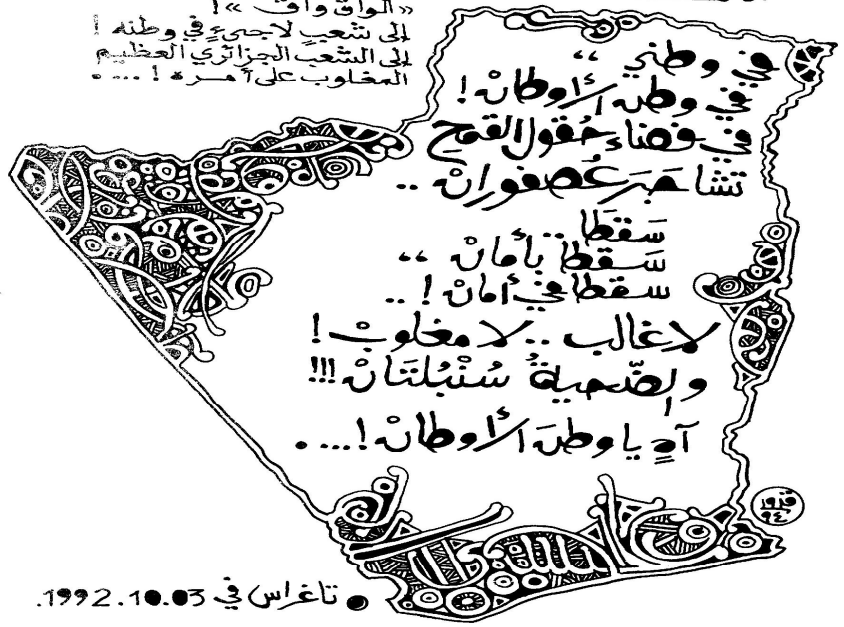 «الواق واق»!
إلى شعبٍ لاجىءٍ في وطنه!
إلى الشعب الجزائري العظيم
المغلوب على أمره!....
في وطني ،،
في وطن الأوطانْ!
في فضاء حُقول القمح
تشاجَرَ عُصفورانْ ..
سَقطَا..
سَقطَا بأمانْ ،،
سقطَا في أمانْ! ..
لا غالب.. لا مغلوبْ!
والضّحيةُ سُنْبُلتَانْ!!!
آهٍ يا وطنَ الأوطانْ!....
قدور
٩٤
تاغراس في 1992.10.03.